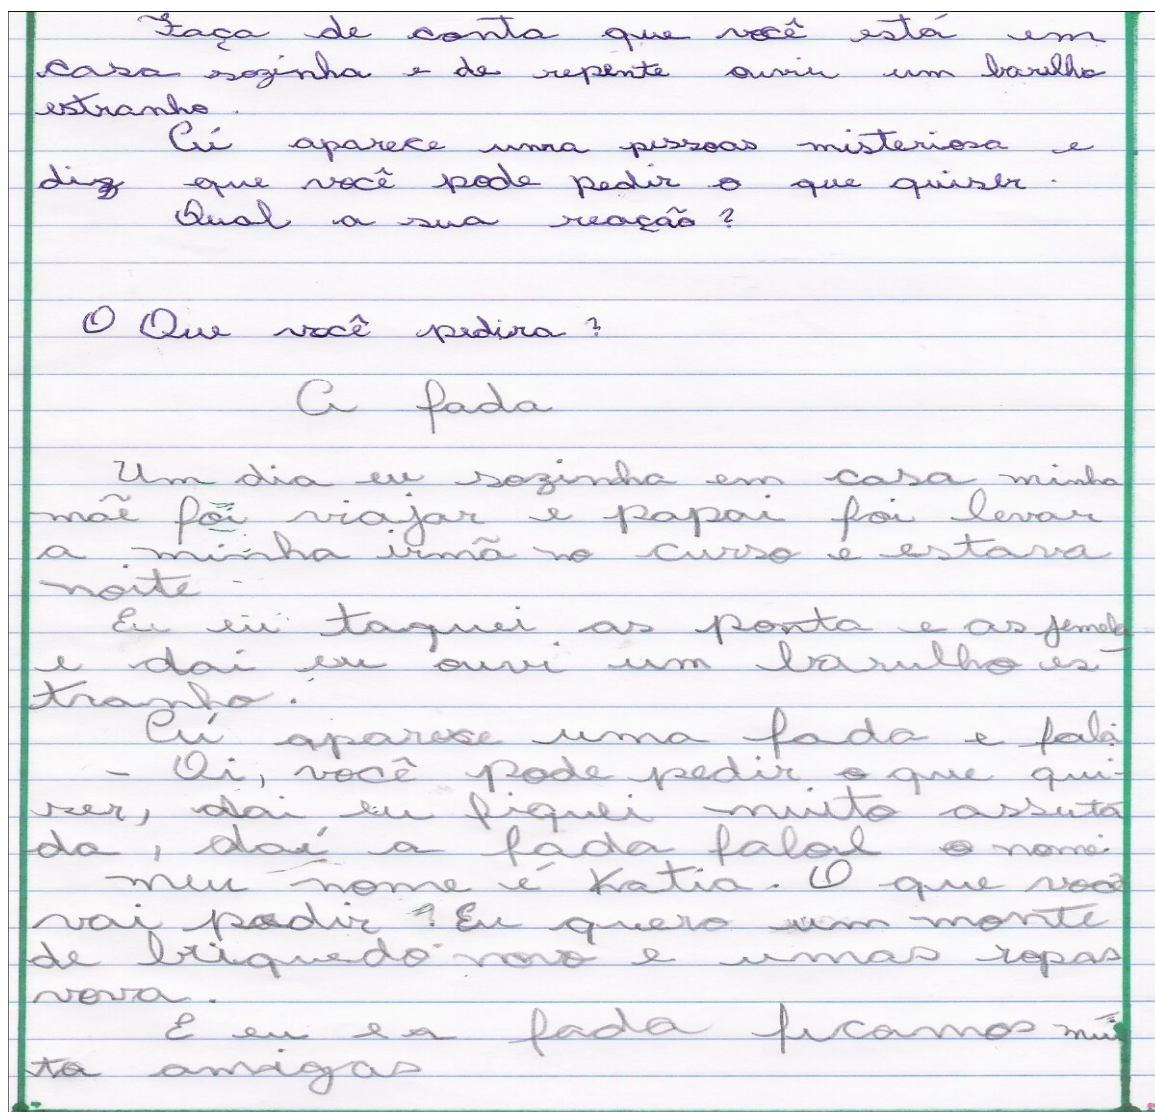 Faça de conta que você está em
casa sozinha e de repente ouviu um barulho
estranho.
Aí aparece uma pessoas misteriosa e
diz que você pode pedir o que quiser.
Qual a sua reação?
O Que você pedira?
A fada
Um dia eu sozinha em casa minha
mãe foi viajar e papai foi levar
a minha irmã no curso e estava
noite
Eu eu taquei as ponta e as jemela
e dai eu ouvi um barulho es-
tranho.
Aí aparese uma fada e fala
- Oi, você pode pedir o que qui-
ser, dai eu fiquei muito assuta
da, daí a fada falol o nome
meu nome é Katia. O que você
vai pedir? Eu quero um monte
de briquedo novo e umas ropas
nova.
E eu e a fada ficamos mui
ta amigas